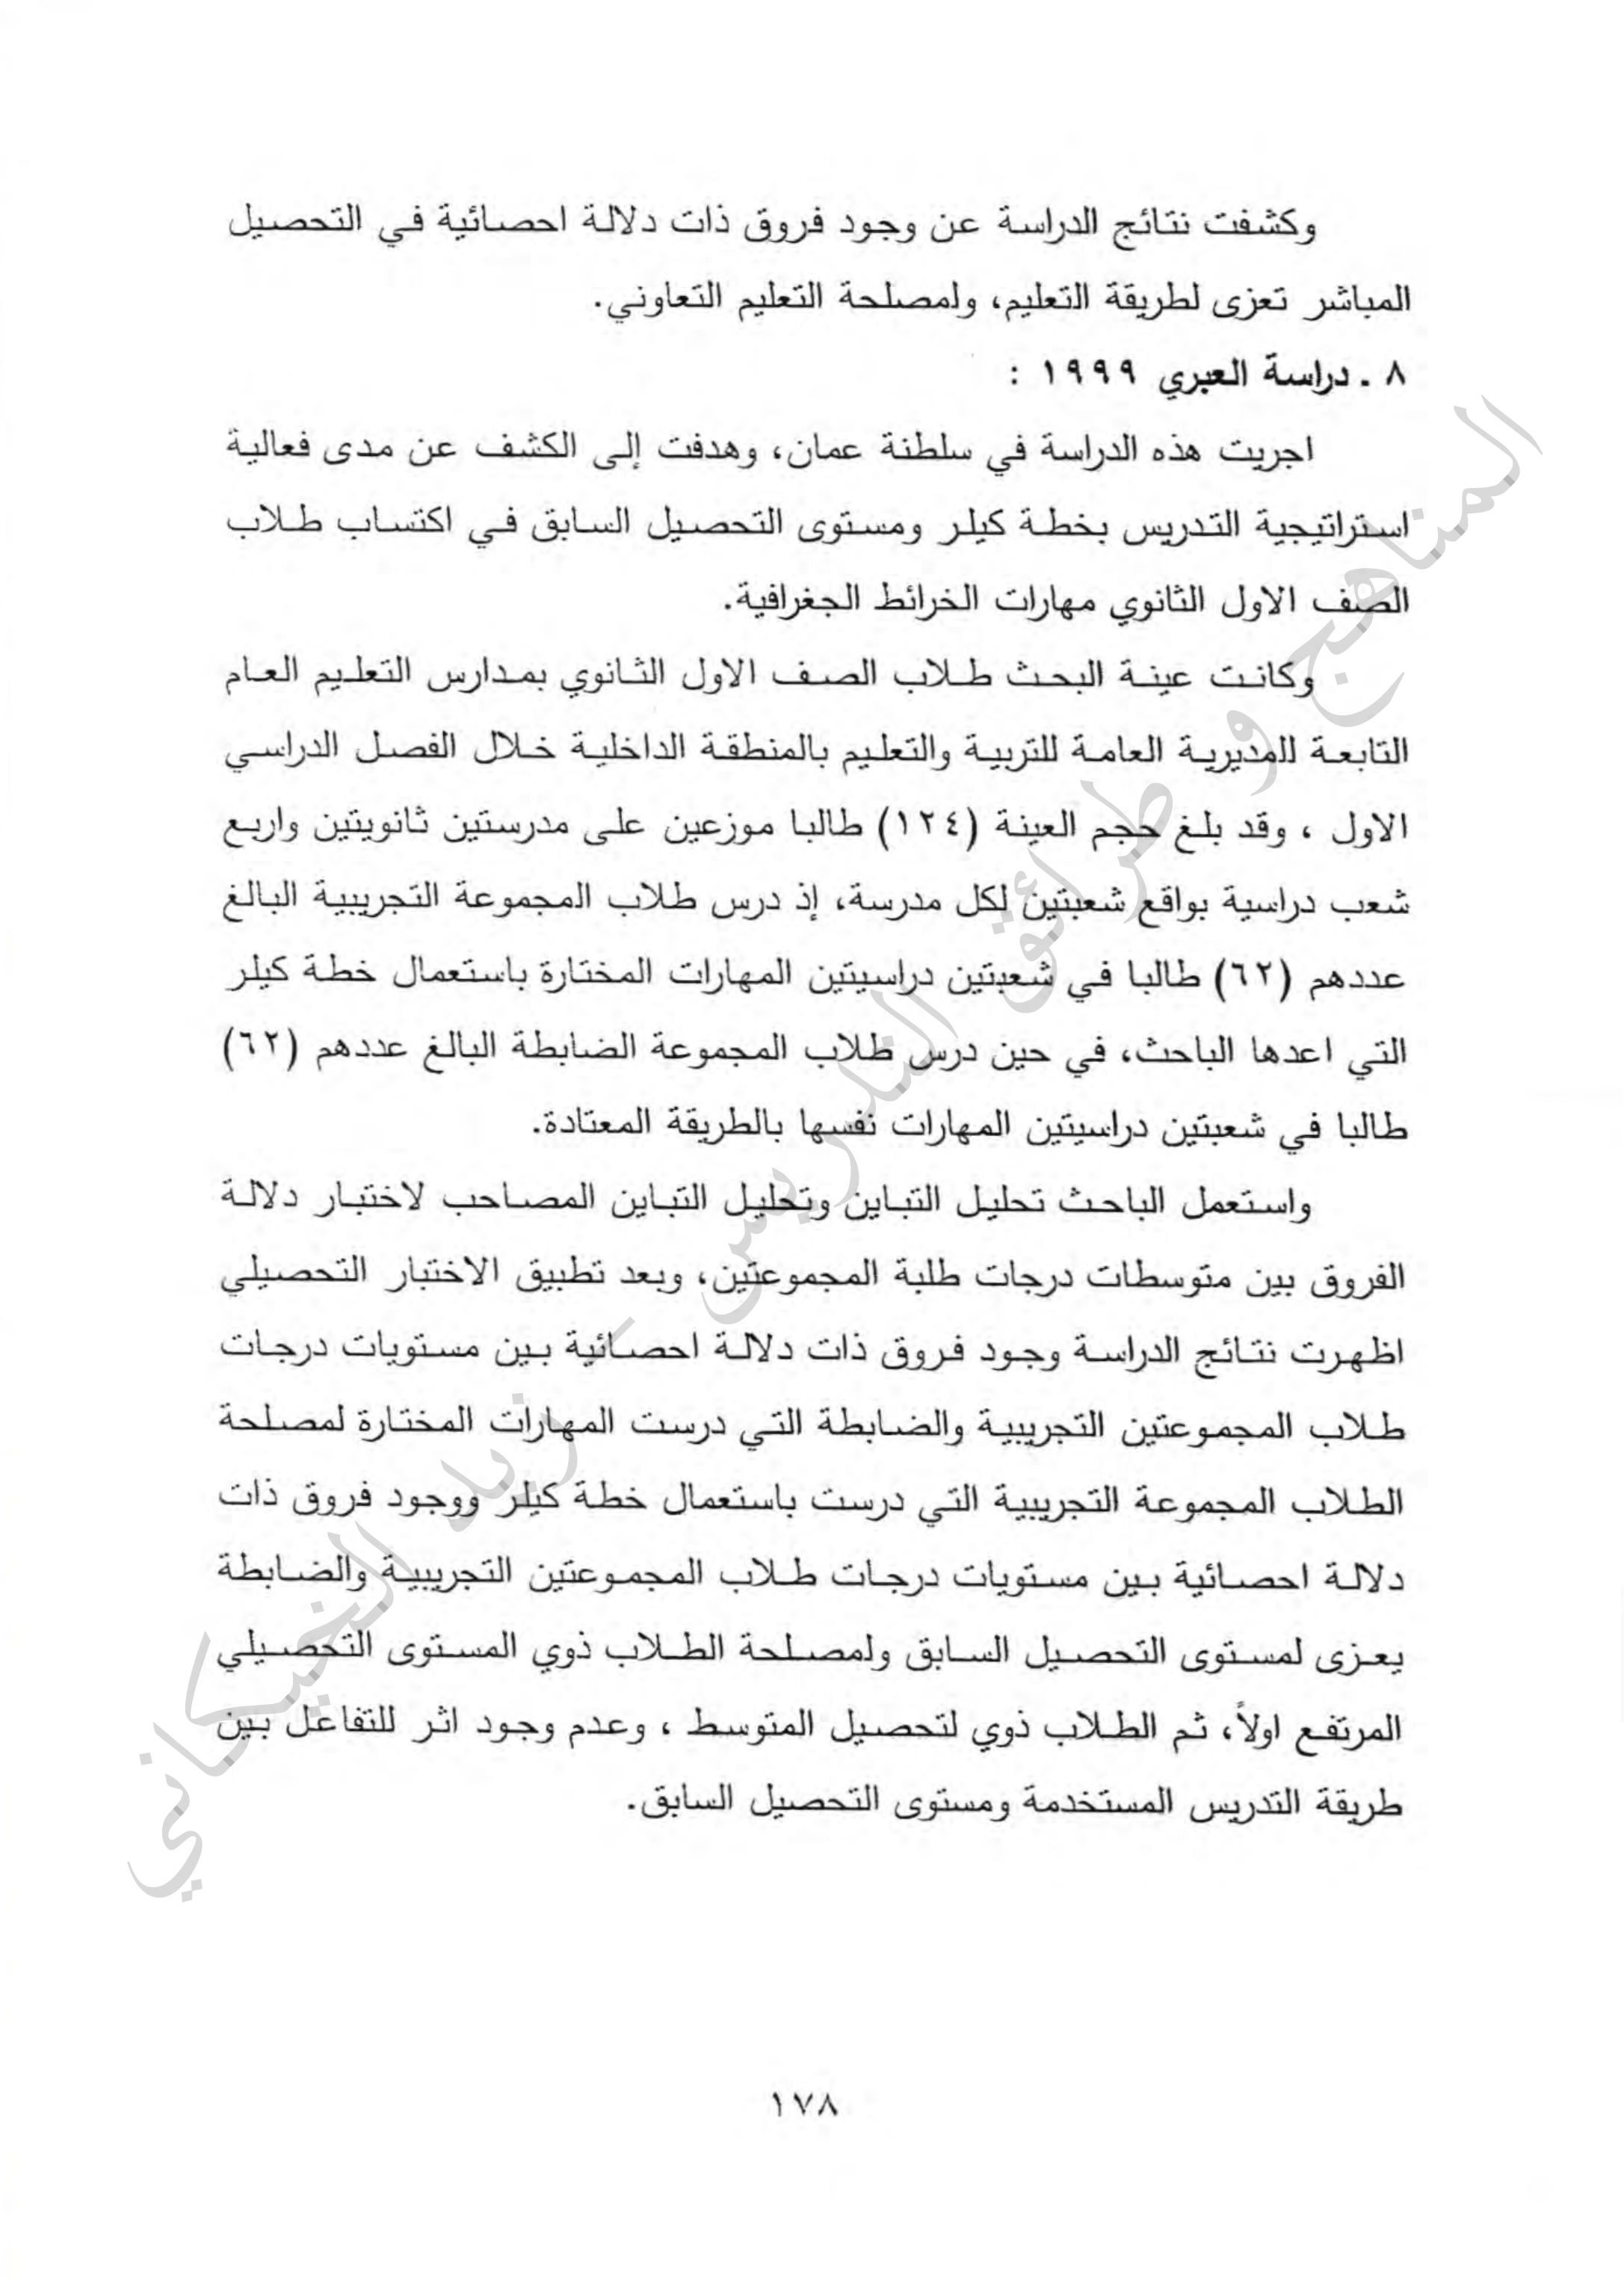 وكشفت نتائج الدراسة عن وجود فروق ذات دلالة احصائية في التحصيل
المباشر تعزى لطريقة التعليم، ولمصلحة التعليم التعاوني.
٨ ـ دراسة العبري ١٩٩٩ :
اجريت هذه الدراسة في سلطنة عمان، وهدفت إلى الكشف عن مدى فعالية
استراتيجية التدريس بخطة كيلر ومستوى التحصيل السابق في اكتساب طلاب
الصف الاول الثانوي مهارات الخرائط الجغرافية.
وكانت عينة البحث طلاب الصف الاول الثانوي بمدارس التعليم العام
التابعة للمديرية العامة للتربية والتعليم بالمنطقة الداخلية خلال الفصل الدراسي
الاول ، وقد بلغ حجم العينة (١٢٤) طالبا موزعين على مدرستين ثانويتين واربع
شعب دراسية بواقع شعبتين لكل مدرسة، إذ درس طلاب المجموعة التجريبية البالغ
عددهم (٦٢) طالبا في شعبتين دراسيتين المهارات المختارة باستعمال خطة كيلر
التي اعدها الباحث، في حين درس طلاب المجموعة الضابطة البالغ عددهم (٦٢)
طالبا في شعبتين دراسيتين المهارات نفسها بالطريقة المعتادة.
واستعمل الباحث تحليل التباين وتحليل التباين المصاحب لاختبار دلالة
الفروق بين متوسطات درجات طلبة المجموعتين، وبعد تطبيق الاختبار التحصيلي
اظهرت نتائج الدراسة وجود فروق ذات دلالة احصائية بين مستويات درجات
طلاب المجموعتين التجريبية والضابطة التي درست المهارات المختارة لمصلحة
الطلاب المجموعة التجريبية التي درست باستعمال خطة كيلر ووجود فروق ذات
دلالة احصائية بين مستويات درجات طلاب المجموعتين التجريبية والضابطة
يعزى لمستوى التحصيل السابق ولمصلحة الطلاب ذوي المستوى التحصيلي
المرتفع اولاً، ثم الطلاب ذوي لتحصيل المتوسط ، وعدم وجود اثر للتفاعل بين
طريقة التدريس المستخدمة ومستوى التحصيل السابق.
المناهج و طرائق التدريس - زيد الخيكاني
١٧٨